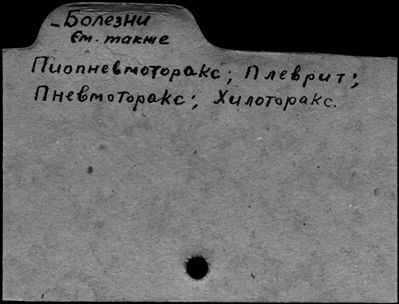 – Болезни
См. также
Пиопневмоторакс; Плеврит;
Пневмоторакс; Хилоторакс.